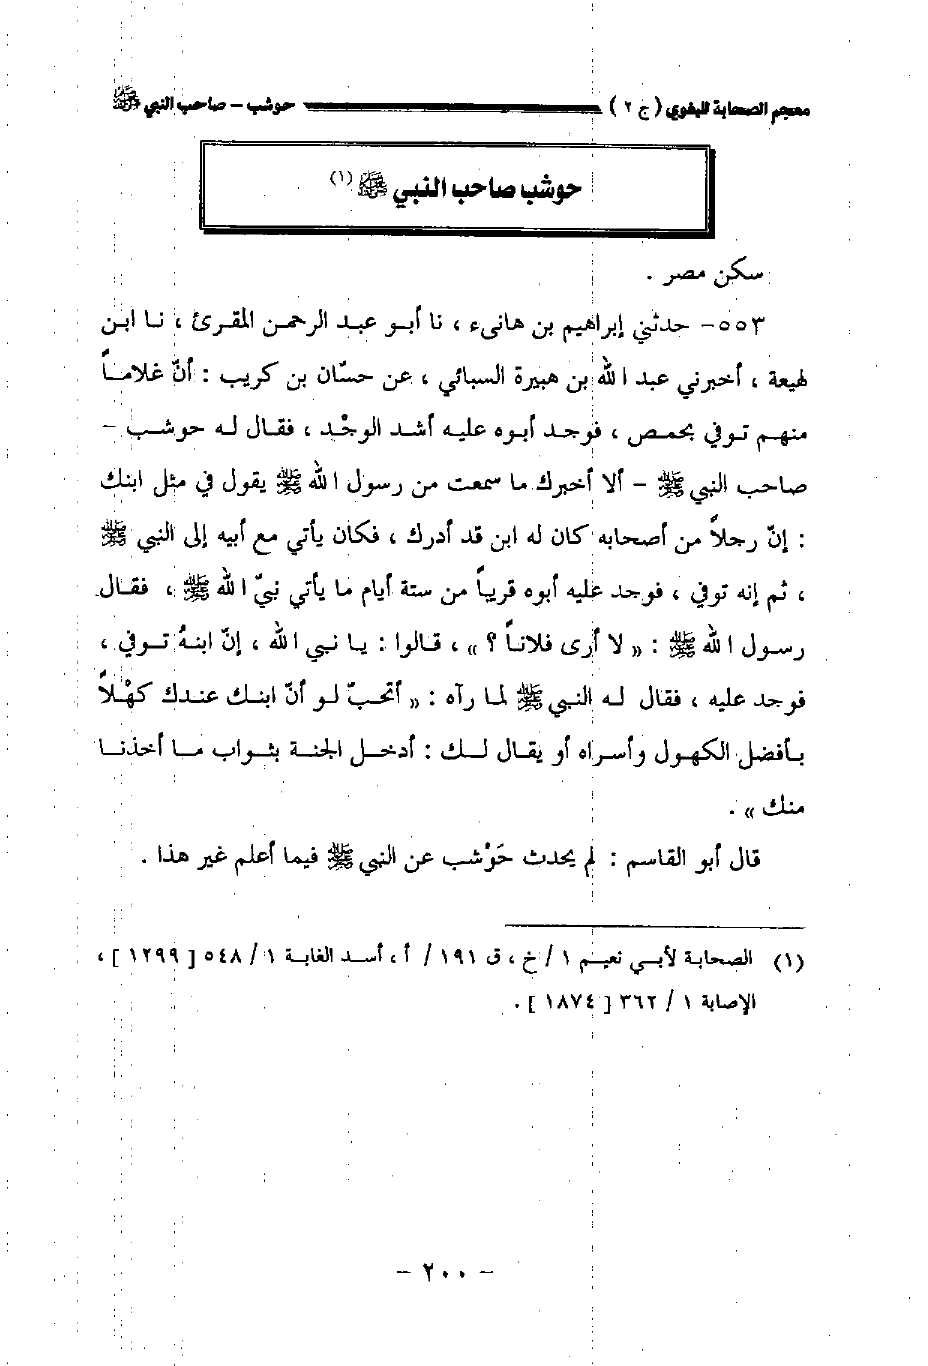 معجم الصحابة للبغوي ( ج ٢ ) حوشب – صاحب النبي ﷺ
حوشب صاحب النبي ﷺ (١)
سكن مصر .
٥٥٣– حدثني إبراهيم بن هانىء ، نا أبو عبد الرحمن المقرئ ، نا ابن
لهيعة ، أخبرني عبد الله بن هبيرة السبائي ، عن حسّان بن كريب : أنّ غلاماً
منهم توفي بحمص ، فوجد أبوه عليه أشد الوجْد ، فقال له حوشب –
صاحب النبي ﷺ – ألا أخبرك ما سمعت من رسول الله ﷺ يقول في مثل ابنك
: إنّ رجلاً من أصحابه كان له ابن قد أدرك ، فكان يأتي مع أبيه إلى النبي ﷺ
، ثم إنه توفي ، فوجد عليه أبوه قريباً من ستة أيام ما يأتي نبيّ الله ﷺ ، فقال
رسول الله ﷺ : « لا أرى فلاناً ؟ » ، قالوا : يا نبي الله ، إنّ ابنهُ توفي ،
فوجد عليه ، فقال له النبي ﷺ لما رآه : « أتحبّ لو أنّ ابنك عندك كهْلاً
بأفضل الكهول وأسراه أو يقال لك : أدخل الجنة بثواب ما أخذنا
منك » .
قال أبو القاسم : لم يحدث حَوْشب عن النبي ﷺ فيما أعلم غير هذا .
(١) الصحابة لأبي نعيم ١ / خ ، ق ١٩١ / أ ، أسد الغابة ١ / ٥٤٨ [ ١٢٩٩ ] ،
الإصابة ١ / ٣٦٢ [ ١٨٧٤ ] .
– ٢٠٠ –